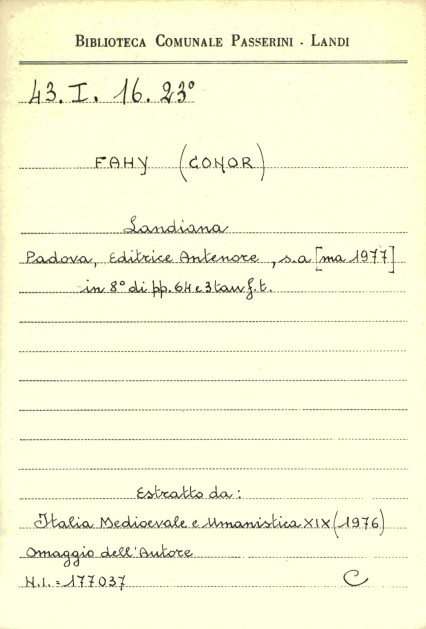 BIBLIOTECA COMUNALE PASSERINI - LANDI
43. I. 16. 23°
FAHY (CONOR)
Landiana
Padova, Editrice Antenore, s.a [ma 1977]
in 8° di pp. 64 e 3 tav f.t.
Estratto da:
Italia Medioevale e Umanistica XIX (1976)
Omaggio dell'Autore
N.I. = 177037
C